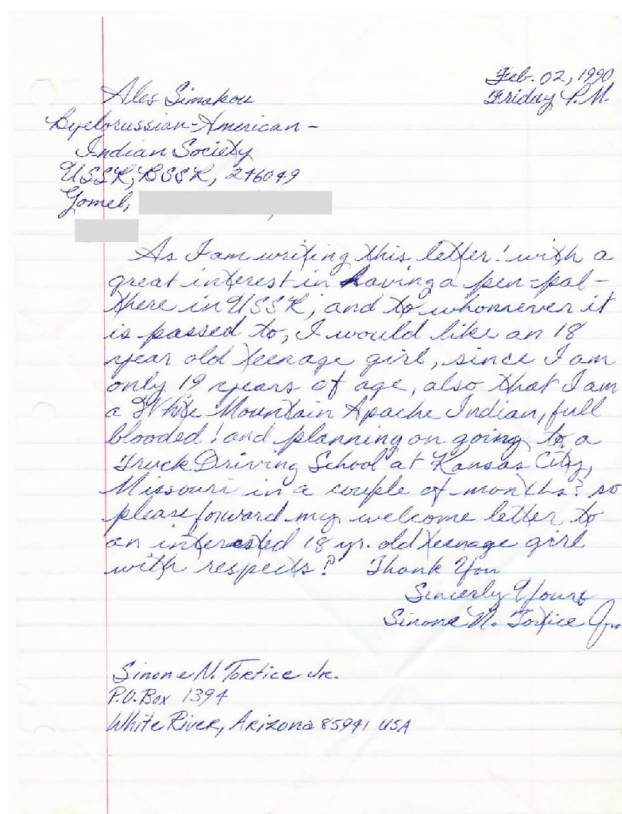 Feb. 02, 1990
Friday P.M.
Ales Simakou
Byelorussian-American-
Indian Society
USSR, BSSR, 246049
Gomel,
As I am writing this letter! with a
great interest in having a pen-pal-
there in USSR, and to whomever it
is passed to, I would like an 18
year old teenage girl, since I am
only 19 years of age, also that I am
a White Mountain Apache Indian, full
blooded! and planning on going to a
Truck Driving School at Kansas City,
Missouri in a couple of months? so
please forward my welcome letter to
an interested 18 yr. old teenage girl
with respects? Thank You
Sincerly Yours
Sinone N. Tortice Jr.
Sinone N. Tortice Jr.
P.O. Box 1394
White River, Arizona 85941 USA